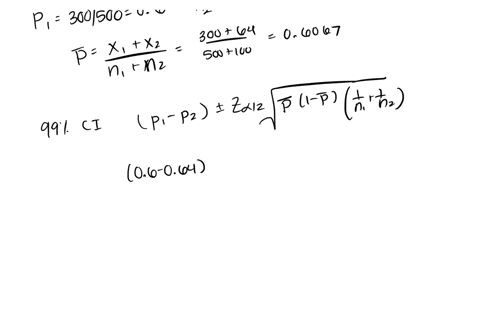 P₁ = 300/500 = 0.6
p̄ = (x₁ + x₂)/(n₁ + n₂) = (300 + 64)/(500 + 100) = 0.6067
99% CI (p₁ - p₂) ± Zα/2 √(p̄ (1-p̄) (1/n₁ + 1/n₂))
(0.6-0.64)